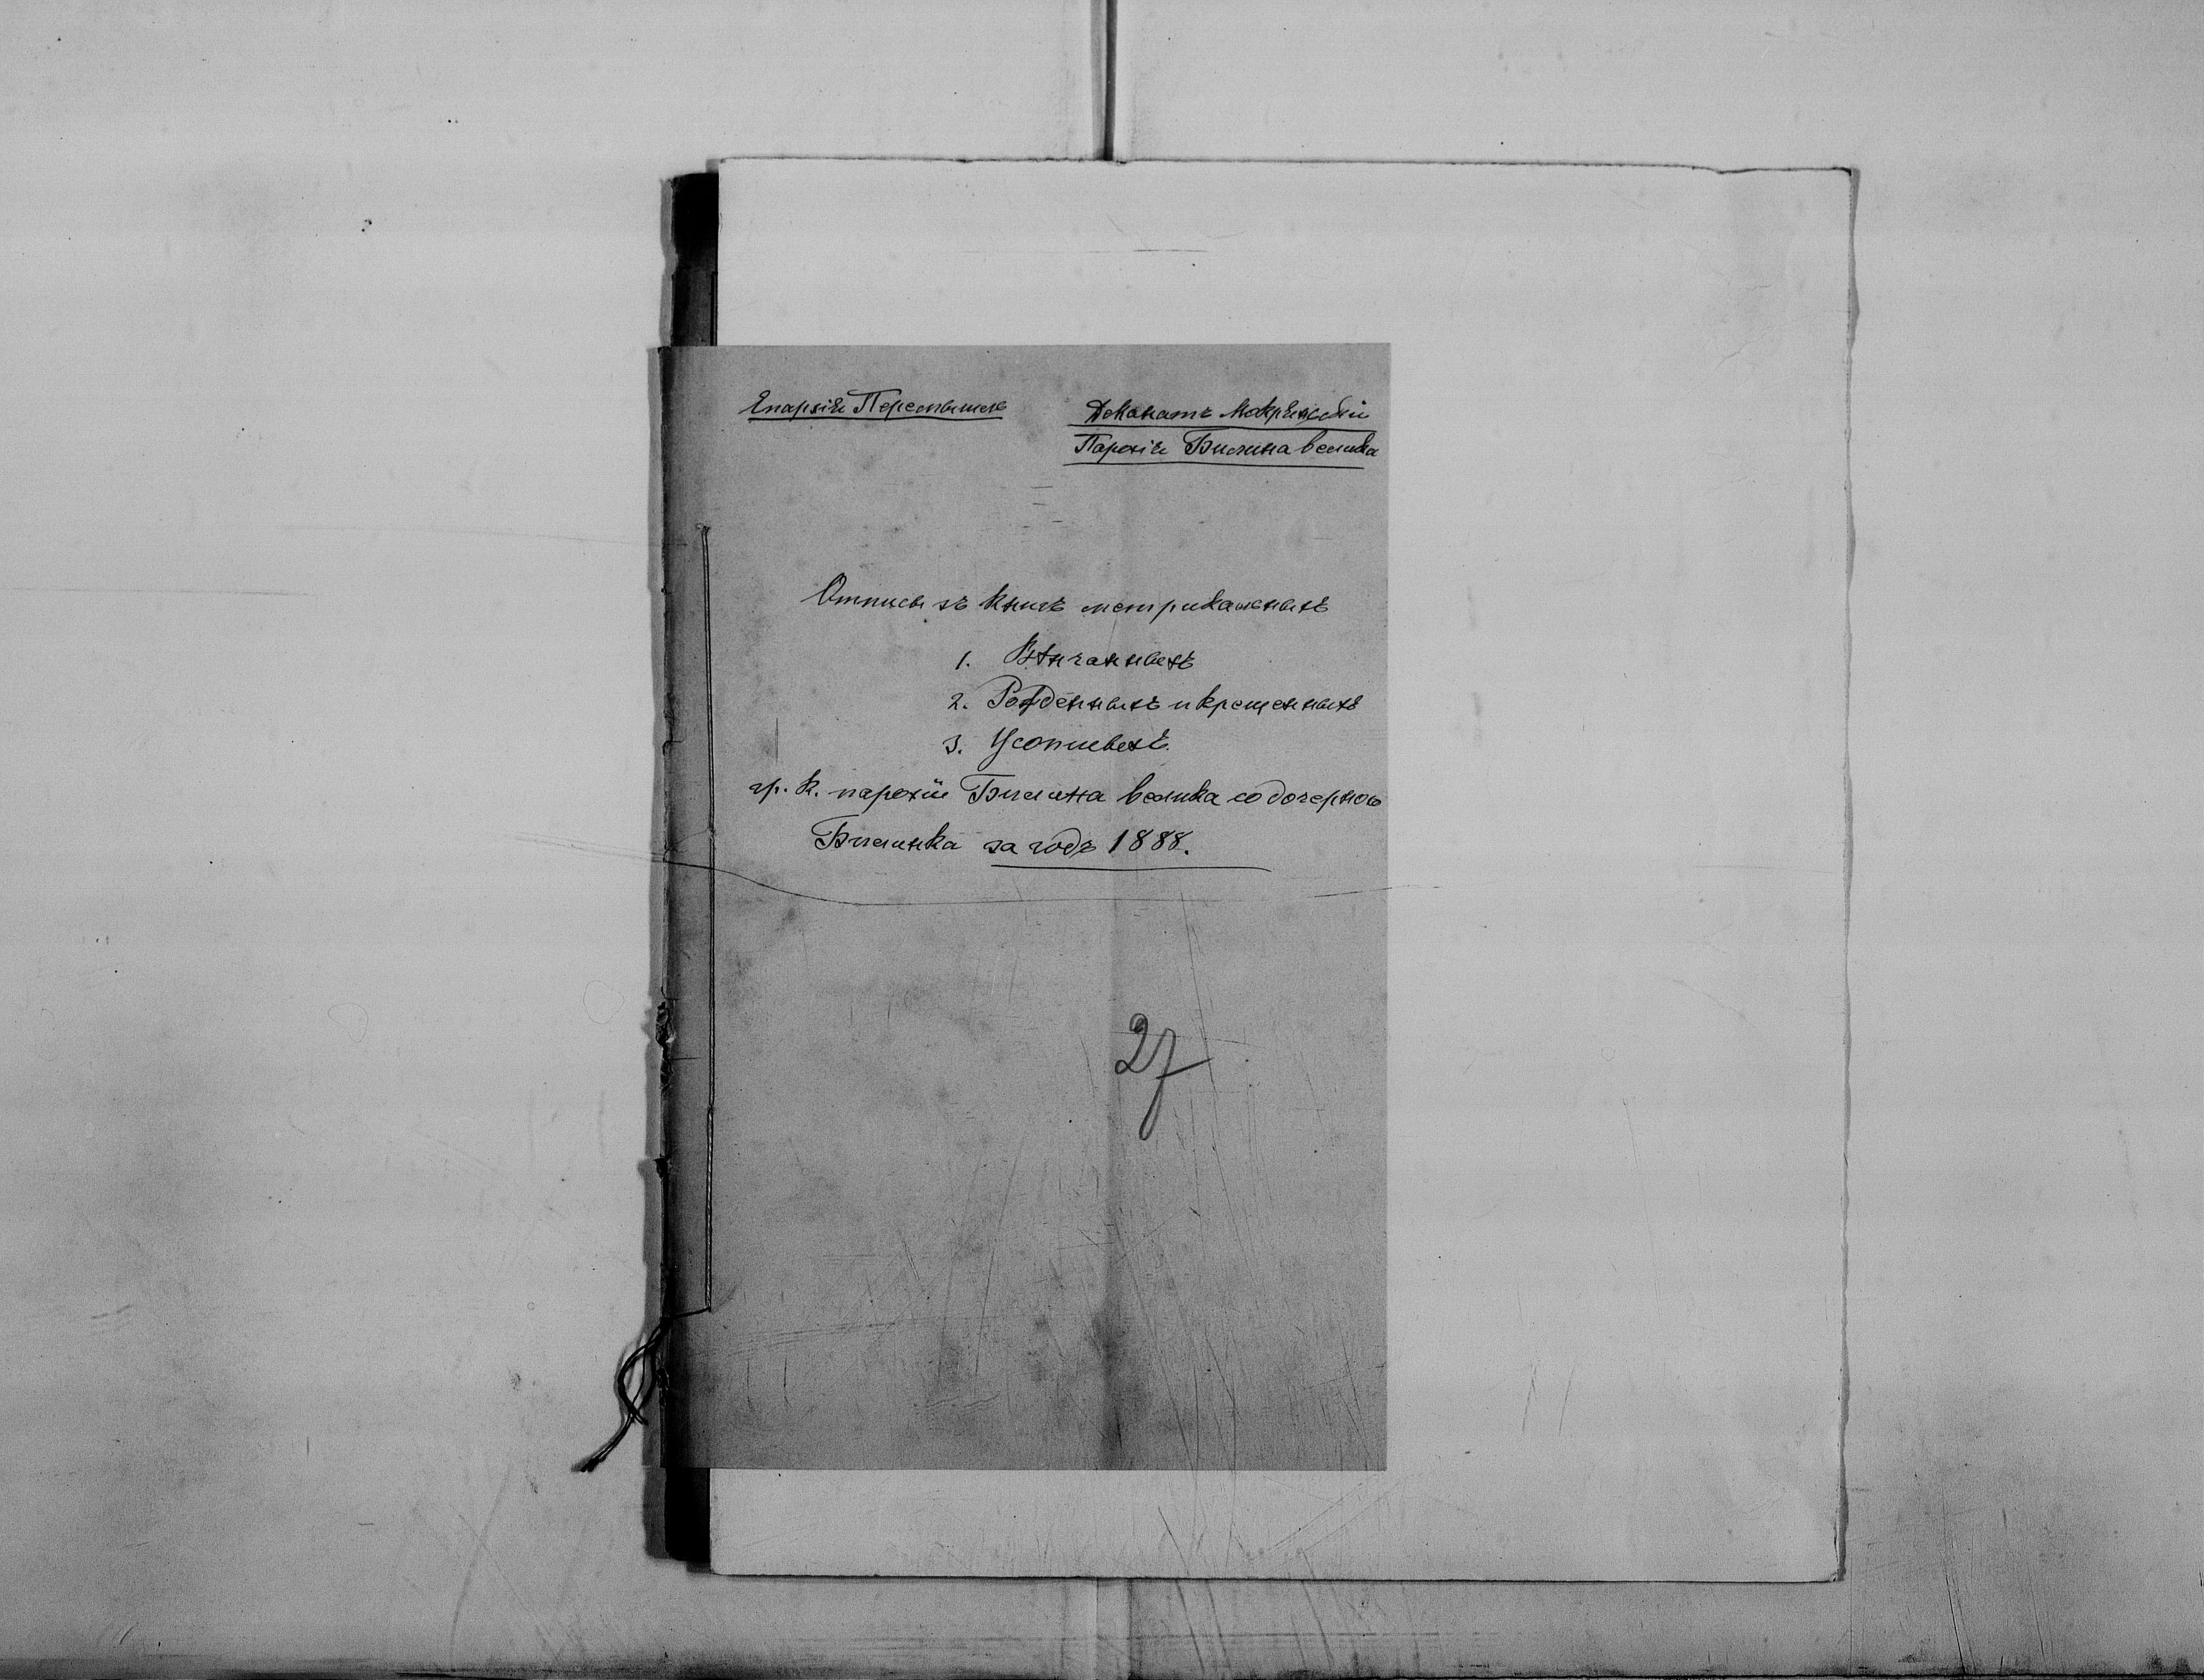 Епархія Перемышль
Деканатъ Мокрянскій
Парохія Билина велика
Отписы зъ книгъ метрикальныхъ
1. Вѣнчанныхъ
2. Рожденныхъ и крещенныхъ
3. Усопшыхъ.
гр. к. парохіи Билина велика со дочерною
Билинка за годъ 1888.
27